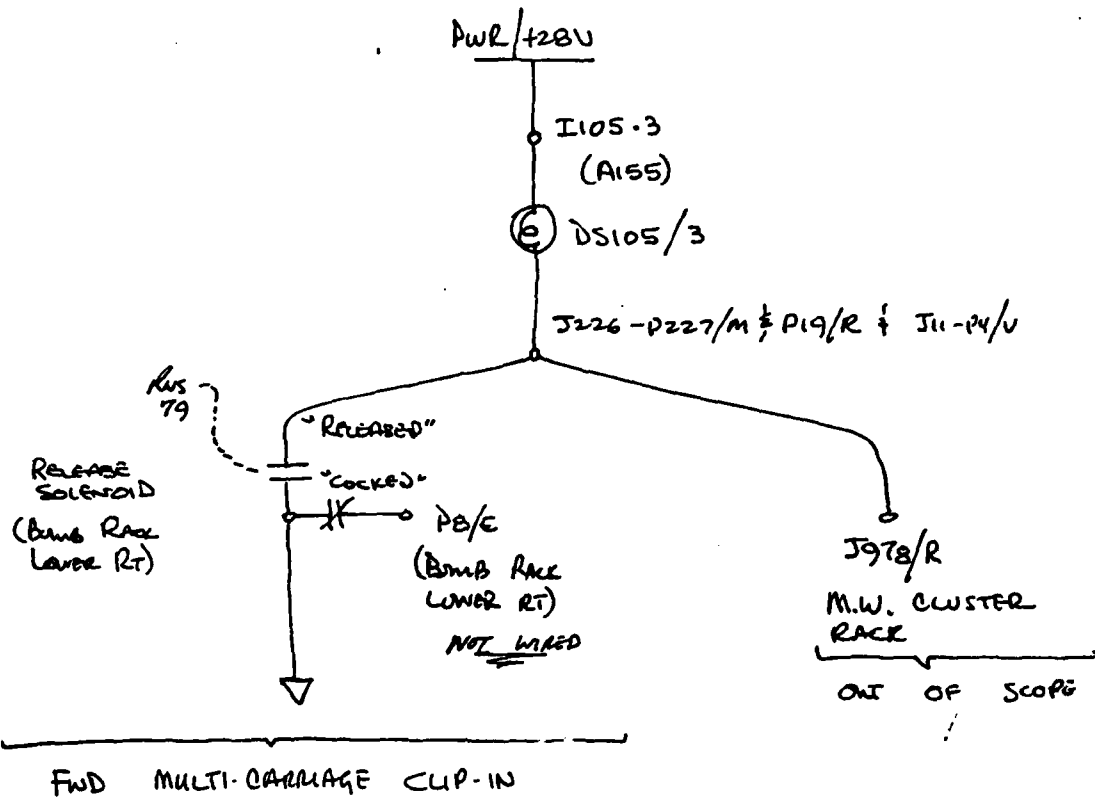 PWR/+28V
I105.3
(A155)
DS105/3
J226-P227/M & P19/R & J11-P4/V
79
"RELEASED"
RELEASE
SOLENOID
"COCKED"
(BOMB RACK
LOWER RT)
P8/E
(BOMB RACK
LOWER RT)
NOT WIRED
J978/R
M.W. CLUSTER
RACK
OUT OF SCOPE
FWD MULTI-CARRIAGE CLIP-IN